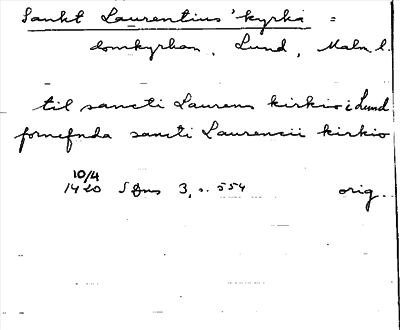 Sankt Laurentius' kyrka =
domkyrkan, Lund, Malm. l.
til sancti Laurens kirkio i Lund
fornefnda sancti Laurencii kirkio
10/4
1420 SDns 3, s. 554 orig.